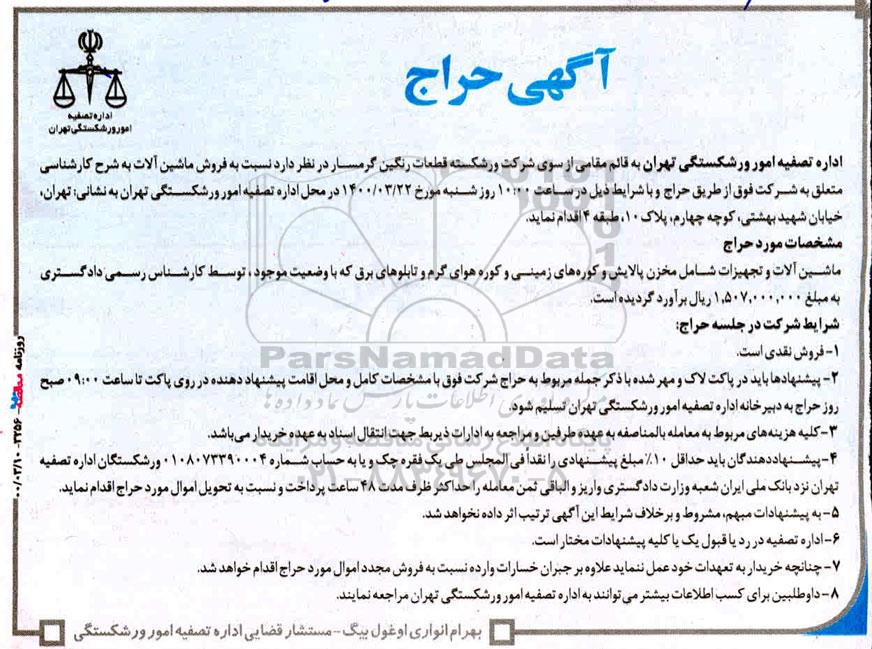 اداره تصفیه
امور ورشکستگی تهران
آگهی حراج
اداره تصفیه امور ورشکستگی تهران به قائم مقامی از سوی شرکت ورشکسته قطعات رنگین گرمسار در نظر دارد نسبت به فروش ماشین آلات به شرح کارشناسی
متعلق به شرکت فوق از طریق حراج و با شرایط ذیل در ساعت ۱۰:۰۰ روز شنبه مورخ ۱۴۰۰/۰۳/۲۲ در محل اداره تصفیه امور ورشکستگی تهران به نشانی: تهران،
خیابان شهید بهشتی، کوچه چهارم، پلاک ۱۰، طبقه ۴ اقدام نماید.
مشخصات مورد حراج
ماشین آلات و تجهیزات شامل مخزن پالایش و کوره‌های زمینی و کوره هوای گرم و تابلوهای برق که با وضعیت موجود، توسط کارشناس رسمی دادگستری
به مبلغ ۱,۵۰۷,۰۰۰,۰۰۰ ریال برآورد گردیده است.
شرایط شرکت در جلسه حراج:
۱- فروش نقدی است.
۲- پیشنهادها باید در پاکت لاک و مهر شده با ذکر جمله مربوط به حراج شرکت فوق با مشخصات کامل و محل اقامت پیشنهاد دهنده در روی پاکت تا ساعت ۰۹:۰۰ صبح
روز حراج به دبیرخانه اداره تصفیه امور ورشکستگی تهران تسلیم شود.
۳- کلیه هزینه‌های مربوط به معامله بالمناصفه به عهده طرفین و مراجعه به ادارات ذیربط جهت انتقال اسناد به عهده خریدار می‌باشد.
۴- پیشنهاددهندگان باید حداقل ۱۰٪ مبلغ پیشنهادی را نقداً فی المجلس طی یک فقره چک و یا به حساب شماره ۰۱۰۸۰۷۳۳۹۰۰۰۴ ورشکستگان اداره تصفیه
تهران نزد بانک ملی ایران شعبه وزارت دادگستری واریز و الباقی ثمن معامله را حداکثر ظرف مدت ۴۸ ساعت پرداخت و نسبت به تحویل اموال مورد حراج اقدام نماید.
۵- به پیشنهادات مبهم، مشروط و برخلاف شرایط این آگهی ترتیب اثر داده نخواهد شد.
۶- اداره تصفیه در رد یا قبول یک یا کلیه پیشنهادات مختار است.
۷- چنانچه خریدار به تعهدات خود عمل ننماید علاوه بر جبران خسارات وارده نسبت به فروش مجدد اموال مورد حراج اقدام خواهد شد.
۸- داوطلبین برای کسب اطلاعات بیشتر می‌توانند به اداره تصفیه امور ورشکستگی تهران مراجعه نمایند.
بهرام انواری اوغول بیگ - مستشار قضایی اداره تصفیه امور ورشکستگی
روزنامه مناقصه - ۳۲۵۶ - ۰۰/۰۳/۱۰
ParsNamadData
۰۲۱-۸۸۳۴۹۶۷۰-۵